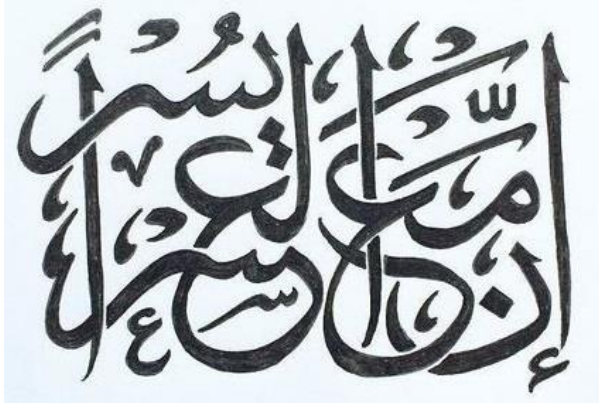 إِنَّ مَعَ الْعُسْرِ يُسْرًا